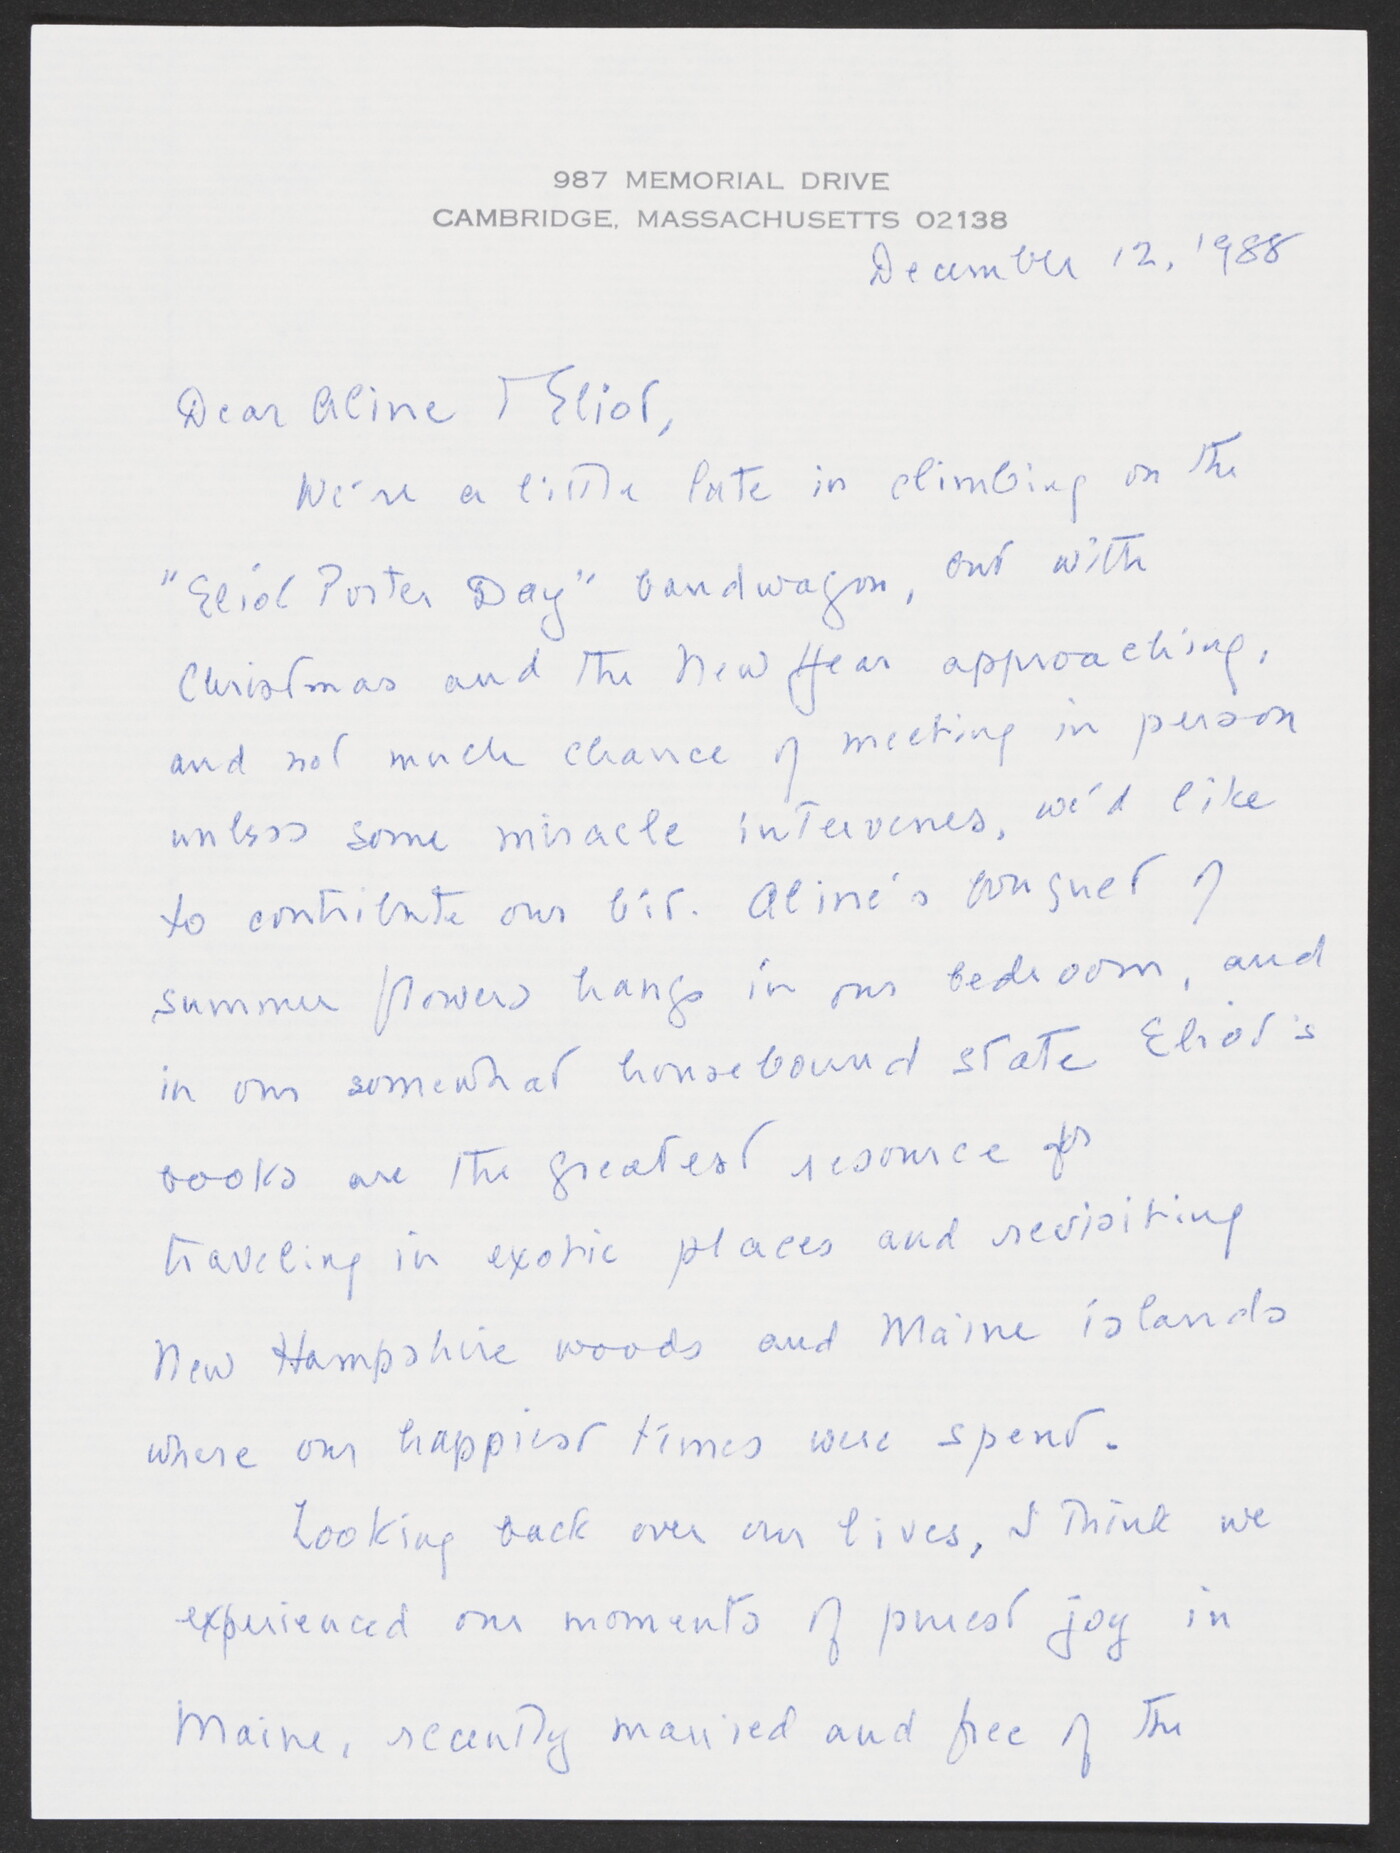 987 MEMORIAL DRIVE
CAMBRIDGE, MASSACHUSETTS 02138
December 12, 1988
Dear Aline + Eliot,
We're a little late in climbing on the
"Eliot Porter Day" bandwagon, but with
Christmas and the New Year approaching,
and not much chance of meeting in person
unless some miracle intervenes, we'd like
to contribute our bit. Aline's bouquet of
summer flowers hangs in our bedroom, and
in our somewhat housebound state Eliot's
books are the greatest resource for
traveling in exotic places and revisiting
New Hampshire woods and Maine islands
where our happiest times were spent.
Looking back over our lives, I think we
experienced our moments of purest joy in
Maine, recently married and free of the